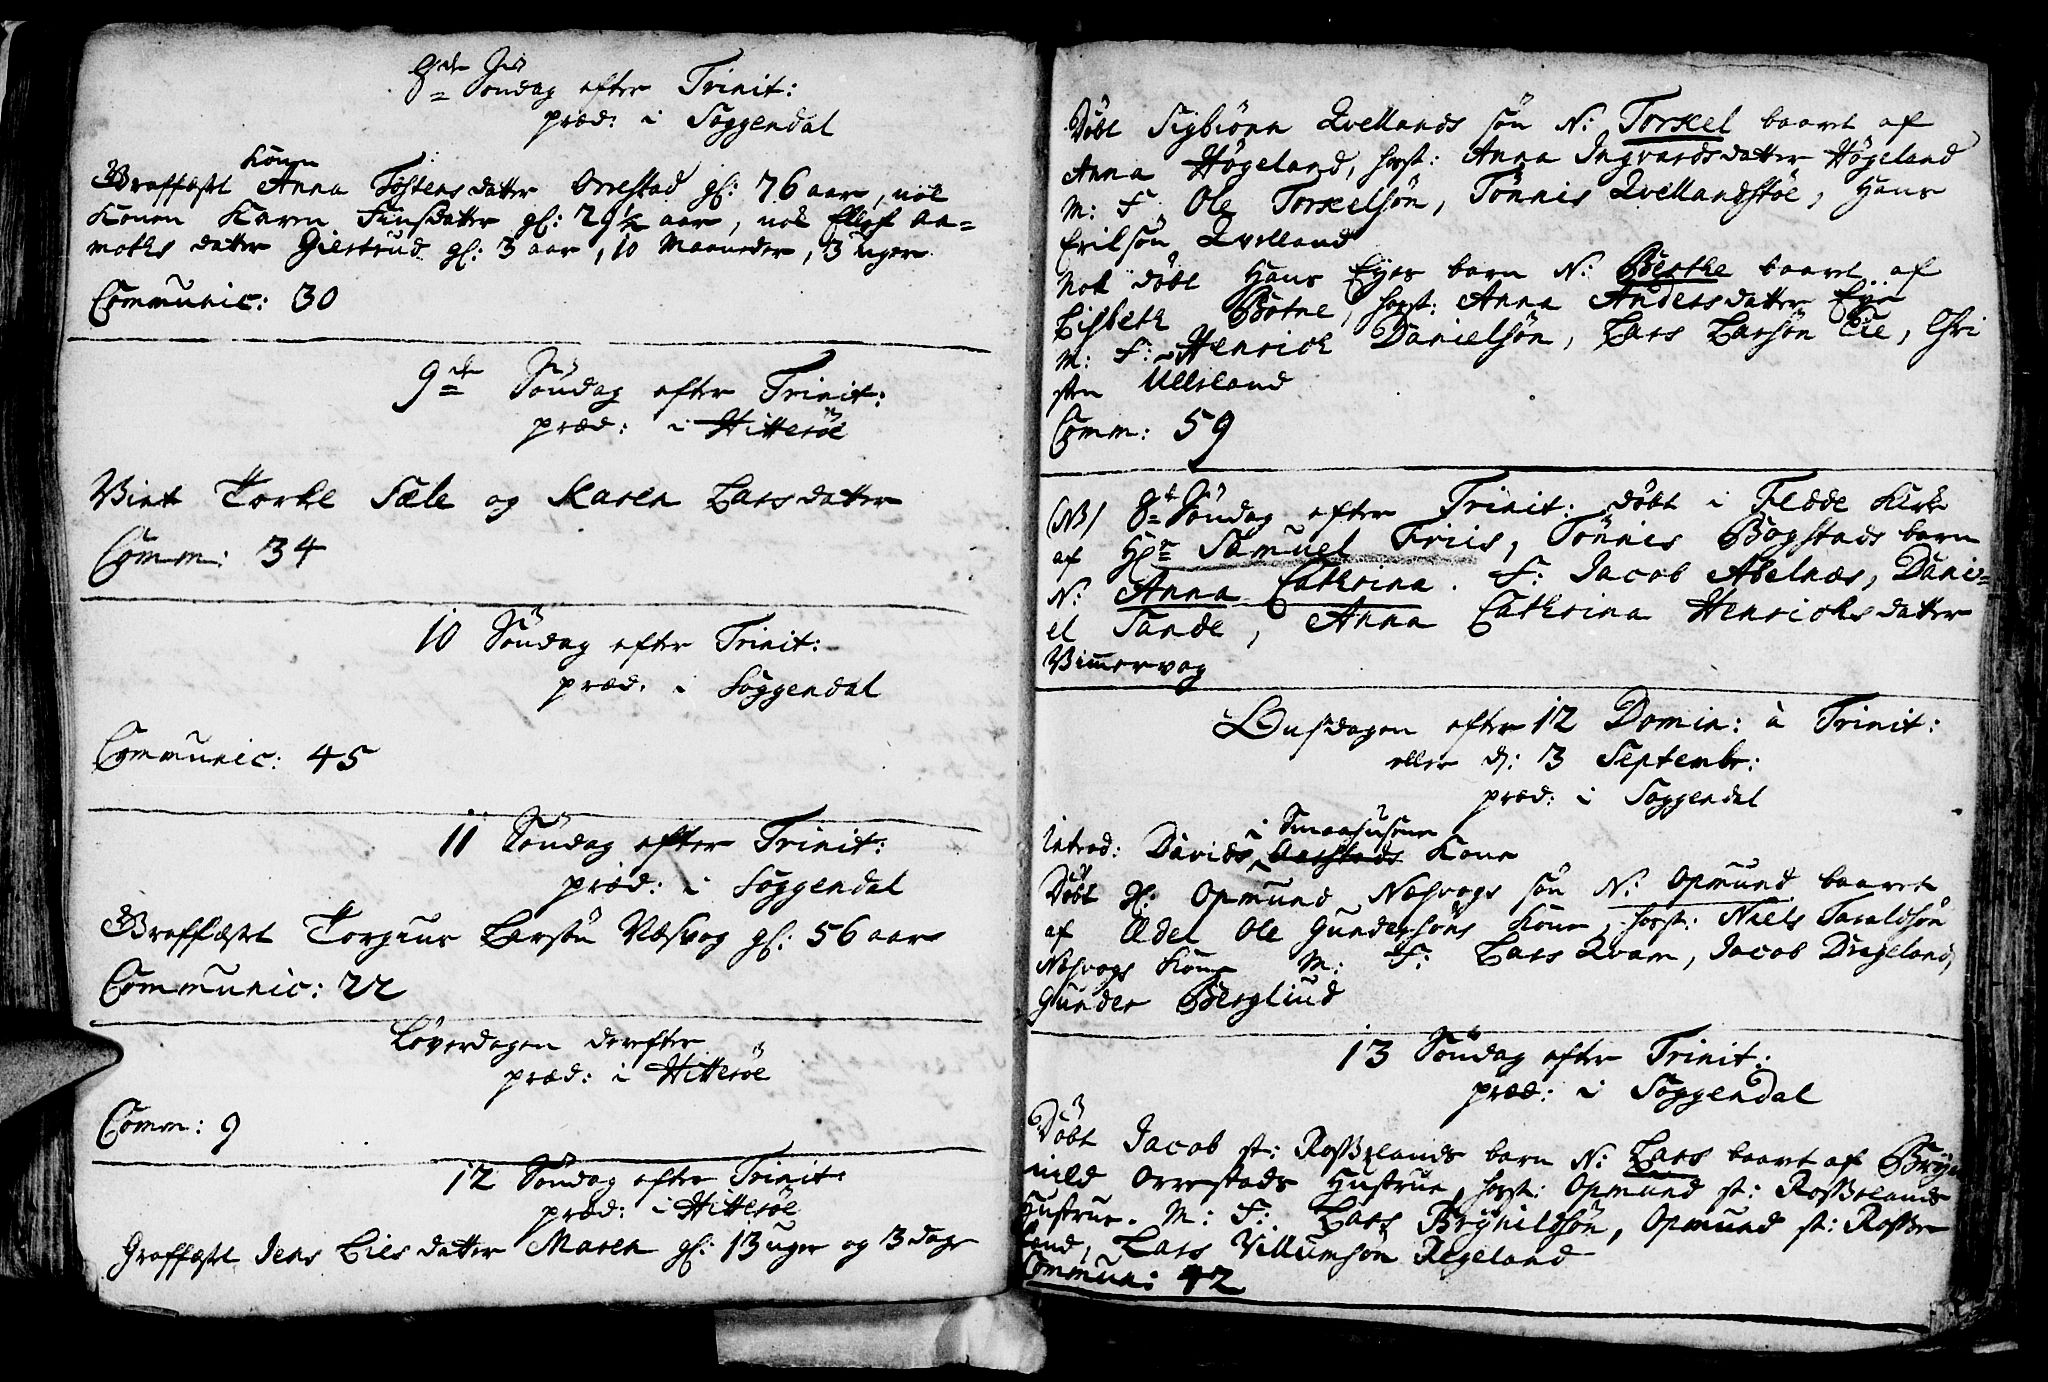 8de Søndag efter Trinit:
præd: i Soggendal
Graffæstet Konen Anna Tostensdatter Orrestad gl: 76 aar, nok
Konen Karen Finsdatter gl: 29½ aar, nok Ellef Aa=
moths datter Giertrud gl: 3 aar, 10 Maaneder, 3 uger
Communic: 30
9de Søndag efter Trinit:
præd: i Hitterøe
Viet Torke Sæle og Karen Larsdatter
Comm: 34
10 Søndag efter Trinit:
præd: i Soggendal
Communic: 45
11 Søndag efter Trinit:
præd: i Soggendal
Graffæstet Torgius Larsøn Næsvog gl: 56 aar
Communic: 22
Løverdagen derefter
præd: i Hitterøe
Comm: 9
12 Søndag efter Trinit:
præd: i Hitterøe
Graffæstet Jens Lies datter Maren gl: 13 uger og 3 dage
Døbt Sigbiørn Qvellands søn N: Torkel baaret af
Anna Høgeland, host: Anna Ingvardsdatter Høgeland
M: F: Ole Torkelsøn, Tønnis Qvellandstøe, Hans
Eriksøn Qvelland
Nok døbt Hans Eyes barn N: Berthe baaret af
Lisbeth Botne, host: Anna Andersdatter Eye
M: F: Henrich Danielsøn, Lars Larsøn Eie, Chri
sten Ulleland
Comm: 59
(NB) 8de Søndag efter Trinit: døbt i Flede Kirke
af Hr Samuel Friis, Tønnis Bogstads barn
N: Anna Cathrina. F: Jacob Abelnæs, Dani=
el Sande, Anna Cathrina Henrichsdatter
Vimmervog
Onsdagen efter 12 Domin: à Trinit:
eller d: 3 Septembr:
præd: i Soggendal
Introd: Davids i Smaahusene Kone
Døbt gl: Opmund Næsvogs søn N: Opmund baaret
af Edel Ole Gundersøns Kone, host: Niels Taraldsøn
Næsvogs Kone M: F: Lars Qvam, Jacob Drageland,
Gunder Berglund
13 Søndag efter Trinit:
præd: i Soggendal
Døbt Jacob st: Rosselands barn N: Lars baaret af Bryn
nild Orrestads Hustrue, host: Opmund st: Rosselands
Hustrue. M: F: Lars Brynildsøn, Opmund st: Rosse
land, Lars Villumsøn Regeland
Communi: 42